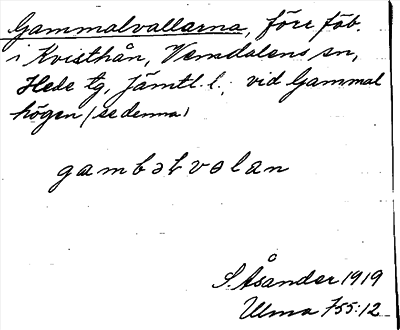 Gammalvallarna, före fäb.
i Kvisthån, Vemdalens sn,
Hede tg, Jämtl. l., vid Gammal
högen (se denna)
gambətvəlan
S. Åsander 1919
Ulma 755:12